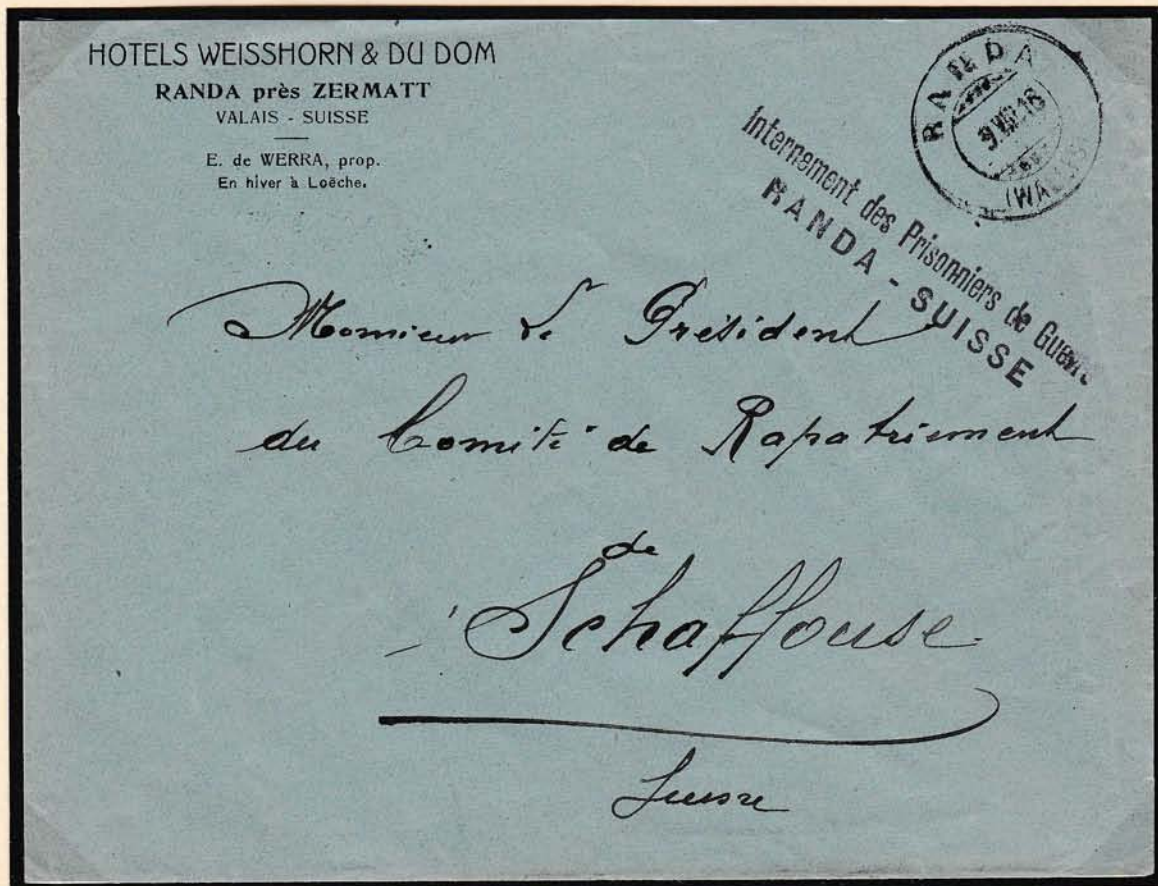 HOTELS WEISSHORN & DU DOM
RANDA près ZERMATT
VALAIS - SUISSE
E. de WERRA, prop.
En hiver à Loëche.
RANDA
(WALLIS)
Internement des Prisonniers de Guerre
RANDA - SUISSE
Monsieur Le Président
du Comité de Rapatriement
de
Schaffouse
Suisse